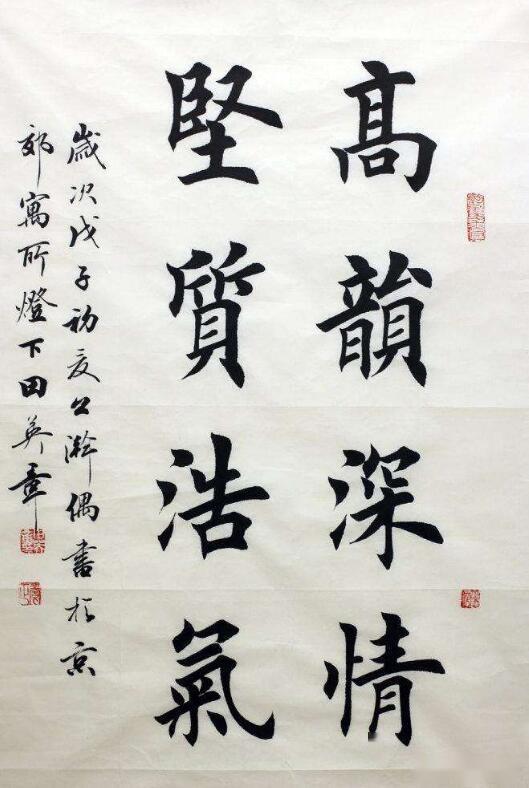 高韻深情
堅質浩氣
歲次戊子初夏公澣偶書於京
郊寓所燈下田英章